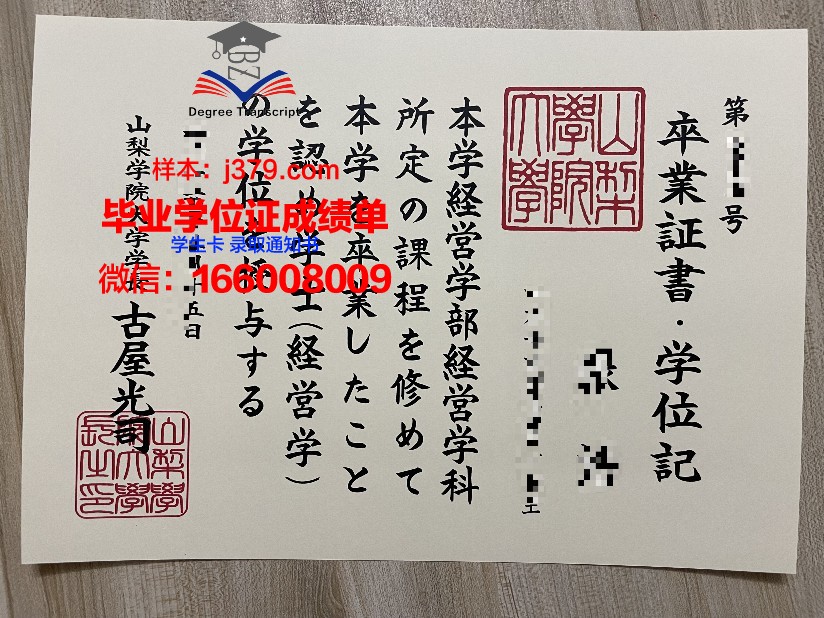 第
号
卒業証書・学位記
山梨
學院
大學
本学経営学部経営学科
所定の課程を修めて
本学を卒業したこと
を認め学士(経営学)
の学位を授与する
五日
山梨学院大学学長 古屋光司
山梨學
院大學
長之印
Degree Transcript
样本：j379.com
毕业学位证成绩单
学生卡 录取通知书
微信：166008009